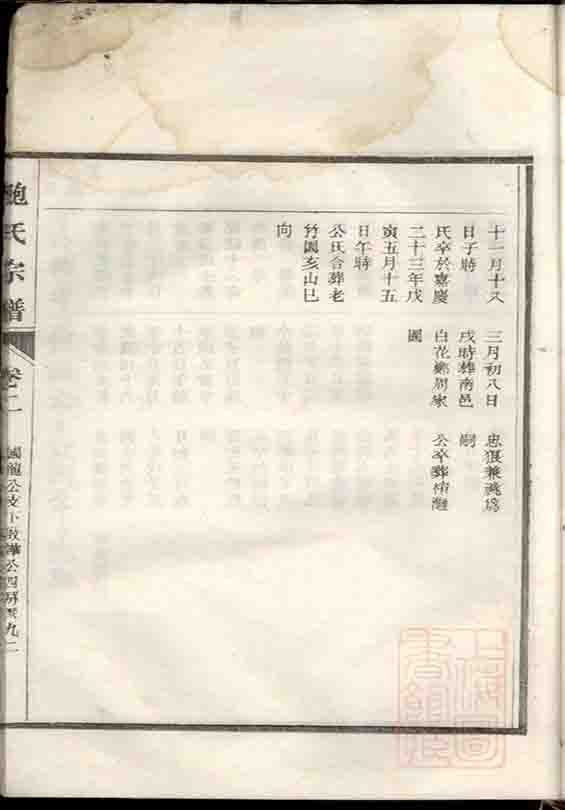 十一月十又
日子時
氏卒於嘉慶
二十三年戊
寅五月十五
日午時
公氏合葬老
竹園亥山巳
向
三月初八日
戌時葬南邑
白花鄉周家
園
忠狠兼祧爲
嗣
公卒葬
鮑氏宗譜
卷十二
國龍公支下啟華公四房
九二
上海圖書館藏